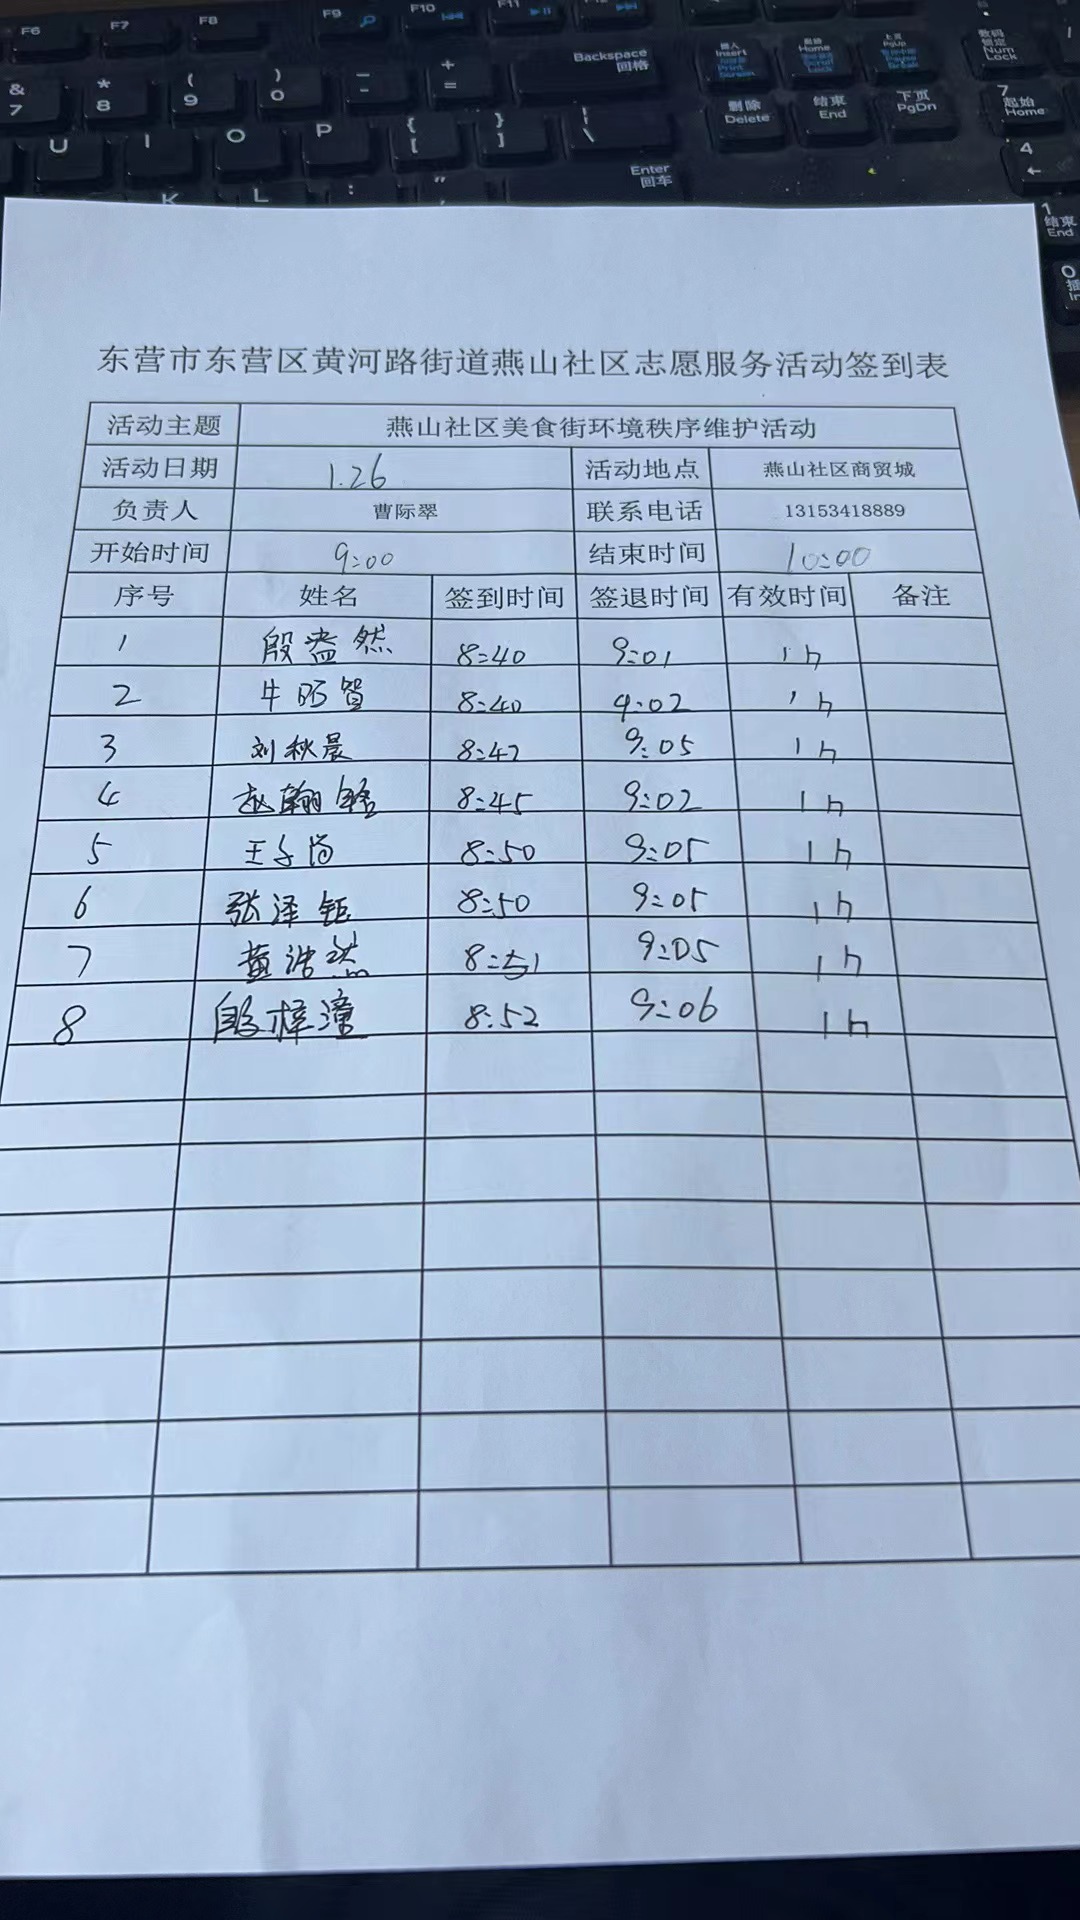 F6 F7 F8 F9 F10 F11
Backspace 回格
插入 Insert Print Screen
Home Scroll Lock
上页 PgUp Pause Break
数码锁定 Num Lock
& 7 * 8 ( 9 ) 0 — - + =
删除 Delete 结束 End 下页 PgDn 7 起始 Home
U I O P { [ } ] | \
4 ←
Enter 回车
K L : "
1 结束 End
0
东营市东营区黄河路街道燕山社区志愿服务活动签到表
活动主题 燕山社区美食街环境秩序维护活动
活动日期 1.26 活动地点 燕山社区商贸城
负责人 曹际翠 联系电话 13153418889
开始时间 9:00 结束时间 10:00
序号 姓名 签到时间 签退时间 有效时间 备注
1 殷盎然 8:40 9:01 1h
2 牛 8:40 9:02 1h
3 刘秋晨 8:42 9:05 1h
4 赵翰铭 8:45 9:02 1h
5 王子尚 8:50 9:05 1h
6 张泽钜 8:50 9:05 1h
7 黄浩然 8:51 9:05 1h
8 梓潼 8:52 9:06 1h